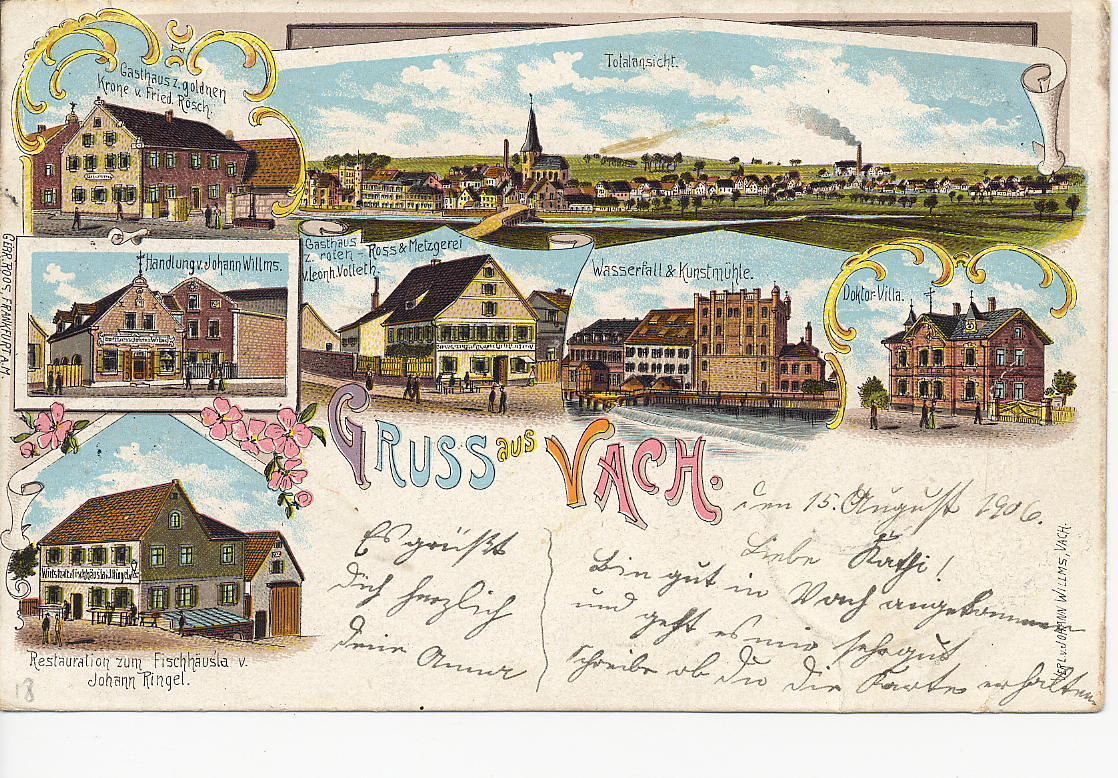 Gasthaus z. goldnen
Krone v. Fried. Rösch.
Totalansicht.
Handlung v. Johann Willms.
Gasthaus
z. roten - Ross & Metzgerei
v. Leonh. Volleth.
Wasserfall & Kunstmühle.
Doktor-Villa.
GEBR. ROOS, FRANKFURT A.M.
GRUSS aus VACH.
Wirtschaft z. Fischhäusla J. Ringel
Restauration zum Fischhäusla v.
Johann Ringel.
den 15. August 1906.
Liebe Kathi!
Bin gut in Vach angekommen
und geht es mir sehr gut
schreibe ob du die Karte erhalten
Es grüßt
Dich herzlich
deine Anna
VERL. v. JOHANN WILLMS, VACH.
18